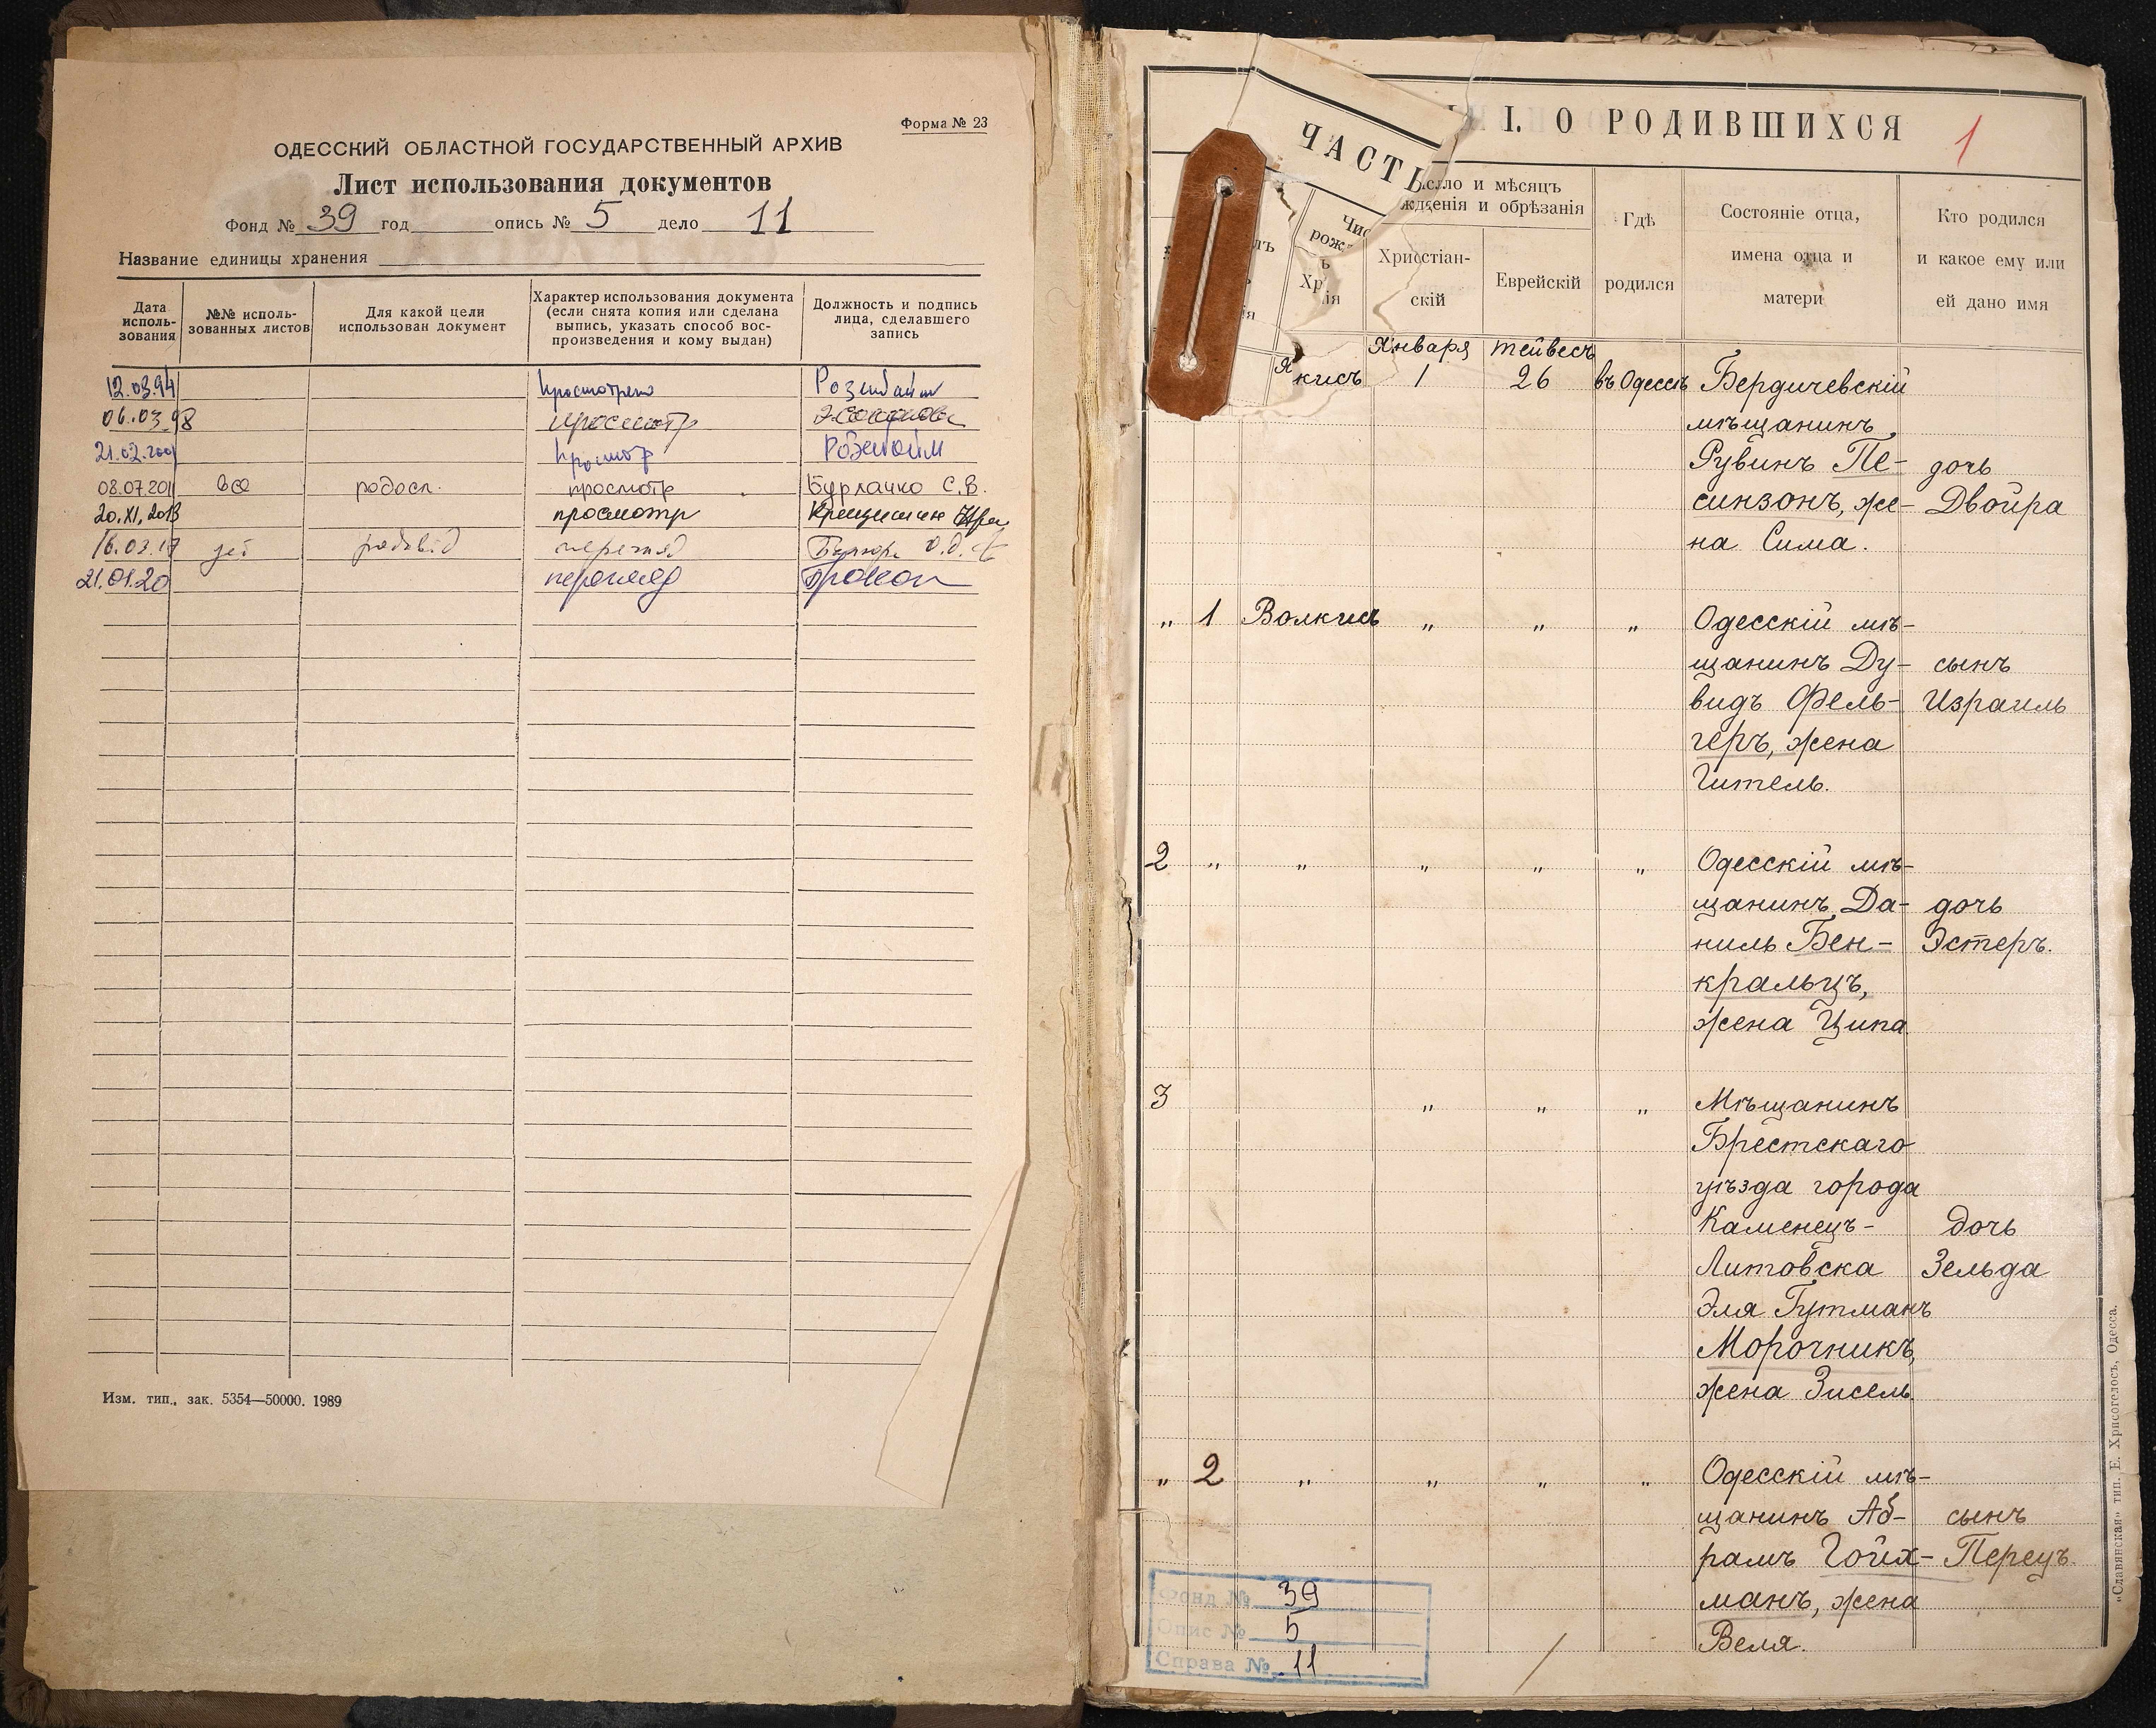 Форма № 23
ОДЕССКИЙ ОБЛАСТНОЙ ГОСУДАРСТВЕННЫЙ АРХИВ
Лист использования документов
Фонд № 39 год опись № 5 дело 11
Название единицы хранения
Дата исполь-зования
№№ исполь-зованных листов
Для какой цели использован документ
Характер использования документа (если снята копия или сделана выпись, указать способ вос-произведения и кому выдан)
Должность и подпись лица, сделавшего запись
12.03.94 просмотрено
06.03.98 просмотр
21.02.2001 просмотр
08.07.2011 все родосл. просмотр Бурлачко С.В.
20.XI.2013 просмотр
16.03.17 родовід перегляд
21.01.20 перегляд
Изм. тип., зак. 5354—50000. 1989
ЧАСТЬ I. О РОДИВШИХСЯ 1
Число и мѣсяцъ
рожденія и обрѣзанія
Христіан-скій
Еврейскій
Гдѣ родился
Состояніе отца, имена отца и матери
Кто родился и какое ему или ей дано имя
Января Тейвесъ
1 26 въ Одессѣ Бердичевскій
мѣщанинъ
Рувинъ Пе- дочь
синзонъ, же- Двойра
на Сима.
„ 1 Волкисъ „ „ „ Одесскій мѣ-
щанинъ Ду- сынъ
видъ Фель- Израиль
геръ, жена
Гитель.
2 „ „ „ „ „ Одесскій мѣ-
щанинъ Да- дочь
ниль Бен- Эстеръ.
кральцъ,
жена Ципа
3 „ „ „ Мѣщанинъ
Брестскаго
уѣзда города
Каменецъ- Дочь
Литовска Зельда
Эля Гутманъ
Морочникъ,
жена Зисель.
„ 2 „ „ „ „ Одесскій мѣ-
щанинъ Аб- сынъ
рамъ Гойх- Перецъ.
манъ, жена
Веля.
Фонд № 39
Опис № 5
Справа № 11
„Славянская“ тип. Е. Хрисогелосъ, Одесса.